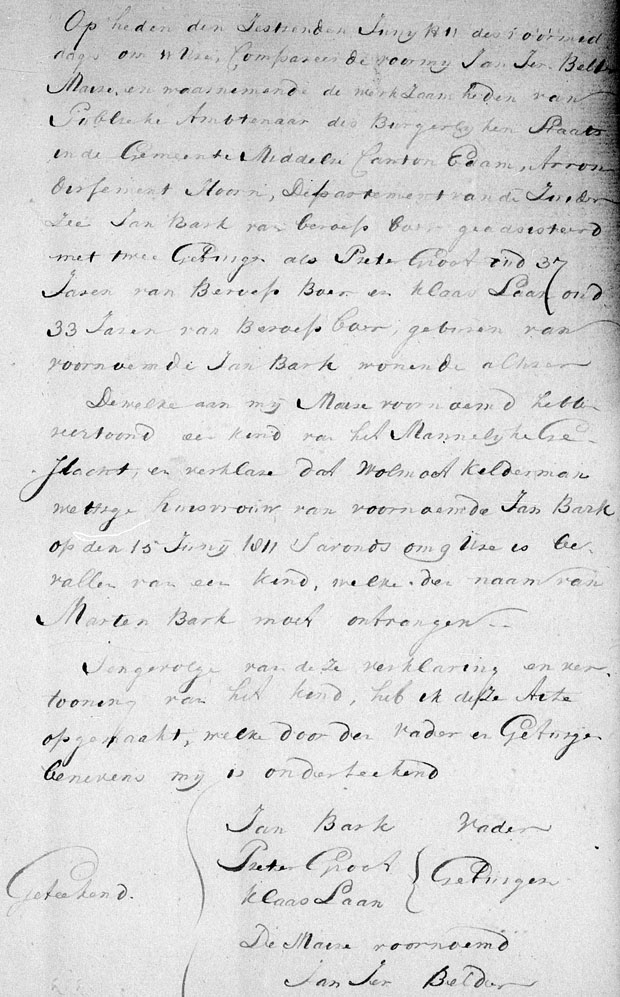 Op heden den Sestienden Juny 1811 des voormid
dags om 11 Uren, Compareerde voor my Jan Ser. Belder
Maire, en waarnemende de werkzaamheden van
Publieke Ambtenaar des Burgerlyken Staats
in de Gemeente Middelie Canton Edam, Arron
dissement Hoorn, Departement van de Zuider
Zee Jan Bark van beroep boer geadsisteerd
met twee Getuige als Pieter Groot oud 37
Jaren van Beroep Boer en Klaas Laan oud
33 Jaren van Beroep boer, geburen van
voornoemde Jan Bark wonende alhier
Dewelke aan my Maire voornoemd hebben
vertoond een kind van het Mannelyke Ge-
slacht, en verklare dat Wolmoet Kelderman
wettige huisvrouw van voornoemde Jan Bark
op den 15 Junij 1811 Savonds om 9 Ure is be-
vallen van een kind, welke den naam van
Marten Bark moet ontvangen
Tengevolge van deze verklaring en ver-
tooning van het kind, heb ik deze Acte
opgemaakt, welke door den vader en Getuige
benevens my is onderteekend
Jan Bark Vader
Pieter Groot
Klaas Laan
Getuigen
Geteekend.
De Maire voornoemd
Jan Ser Belder